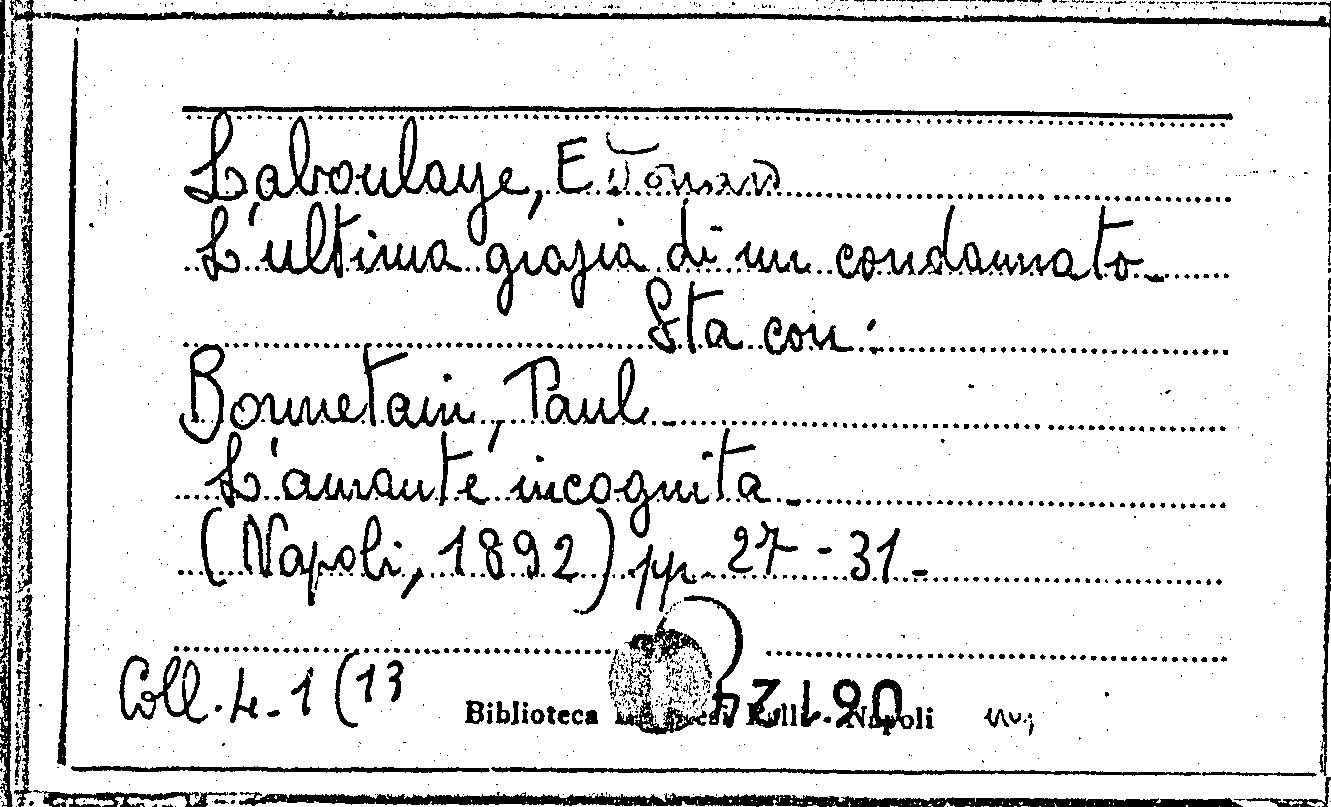 Laboulaye, Edouard
L'ultima grazia di un condannato.
Sta con:
Bonnetain, Paul.
L'amante incognita.
(Napoli, 1892) pp. 27-31.
Coll. 4. 1 (13
Biblioteca Napoli